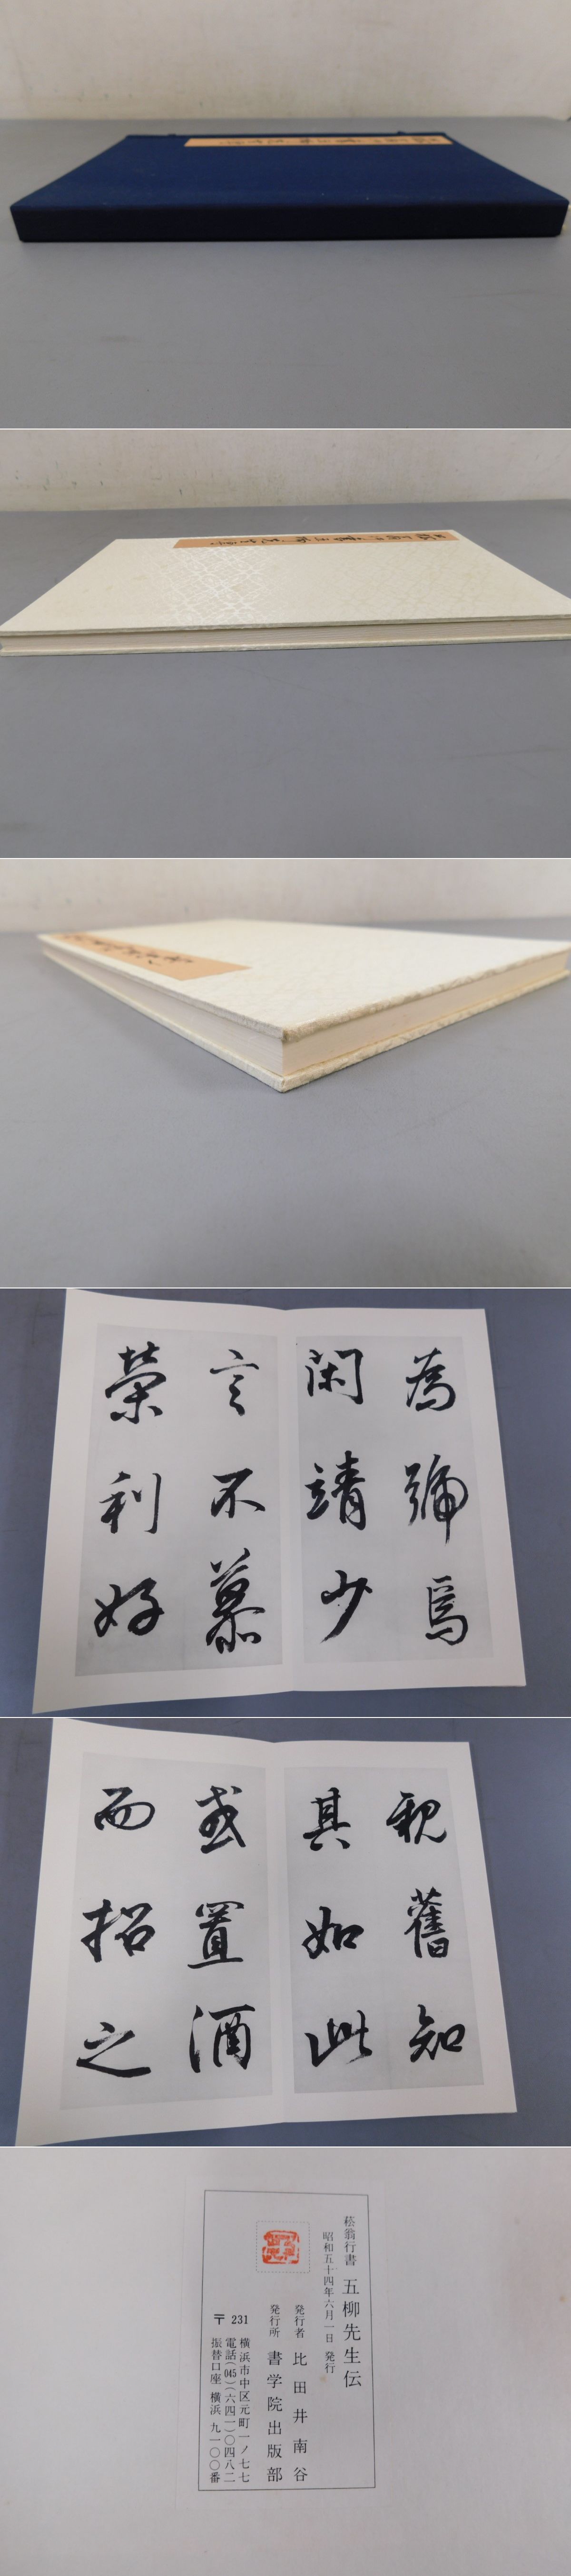 為號焉
閑靖少
言不慕
榮利好
親舊知
其如此
或置酒
而招之
菘翁行書 五柳先生伝
昭和五十四年六月一日 発行
発行者 比田井南谷
発行所 書学院出版部
〒231 横浜市中区元町一ノ七七
電話(045)(六四一)〇四八二
振替口座 横浜 九一〇〇番